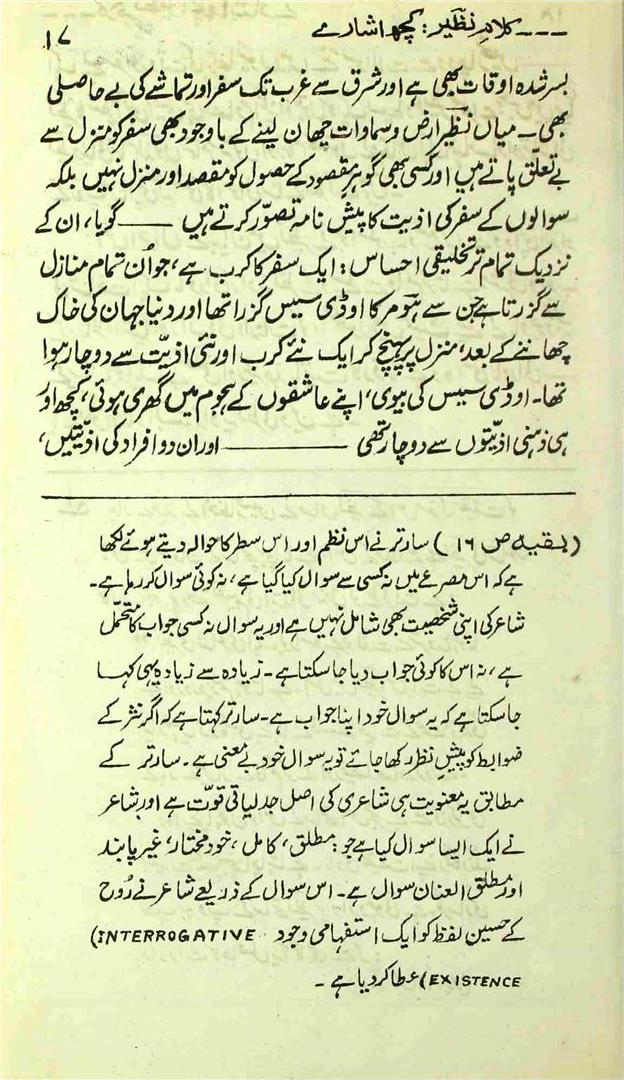 --- کلامِ نظیر: کچھ اشارے ۱۷
بسر شدہ اوقات بھی ہے اور شرق سے غرب تک سفر اور تماشے کی بے حاصلی
بھی۔ میاں نظیر ارض و سماوات چھان لینے کے باوجود بھی سفر کو منزل سے
بے تعلق پاتے ہیں اور کسی بھی گوہرِ مقصود کے حصول کو مقصد اور منزل نہیں بلکہ
سوالوں کے سفر کی اذیت کا پیش نامہ تصوّر کرتے ہیں —— گویا، ان کے
نزدیک تمام تر تخلیقی احساس: ایک سفر کا کرب ہے، جو اُن تمام منازل
سے گزرتا ہے جن سے ہومر کا اوڈی سیس گزرا تھا اور دنیا جہان کی خاک
چھاننے کے بعد، منزل پر پہنچ کر ایک نئے کرب اور نئی اذیّت سے دوچار ہوا
تھا۔ اوڈی سیس کی بیوی، اپنے عاشقوں کے ہجوم میں گھری ہوئی، کچھ اور
ہی ذہنی اذیّتوں سے دوچار تھی ———— اور ان دو افراد کی اذیّتیں،
(بقیہ ص ۱۶) سارتر نے اس نظم اور اس سطر کا حوالہ دیتے ہوئے لکھا
ہے کہ اس مصرعے میں نہ کسی سے سوال کیا گیا ہے، نہ کوئی سوال کر رہا ہے۔
شاعر کی اپنی شخصیت بھی شامل نہیں ہے اور یہ سوال نہ کسی جواب کا متحمّل
ہے، نہ اس کا کوئی جواب دیا جا سکتا ہے۔ زیادہ سے زیادہ یہی کہا
جا سکتا ہے کہ یہ سوال خود اپنا جواب ہے۔ سارتر کہتا ہے کہ اگر نثر کے
ضوابط کو پیشِ نظر رکھا جائے تو یہ سوال خود بے معنی ہے۔ سارتر کے
مطابق یہ معنویت ہی شاعری کی اصل جدلیاتی قوّت ہے اور شاعر
نے ایک ایسا سوال کیا ہے جو: مطلق، کامل، خود مختار، غیر پابند
اور مطلق العنان سوال ہے۔ اس سوال کے ذریعے شاعر نے رُوح
کے حسین لفظ کو ایک استفہامی وجود (INTERROGATIVE
EXISTENCE) عطا کر دیا ہے۔